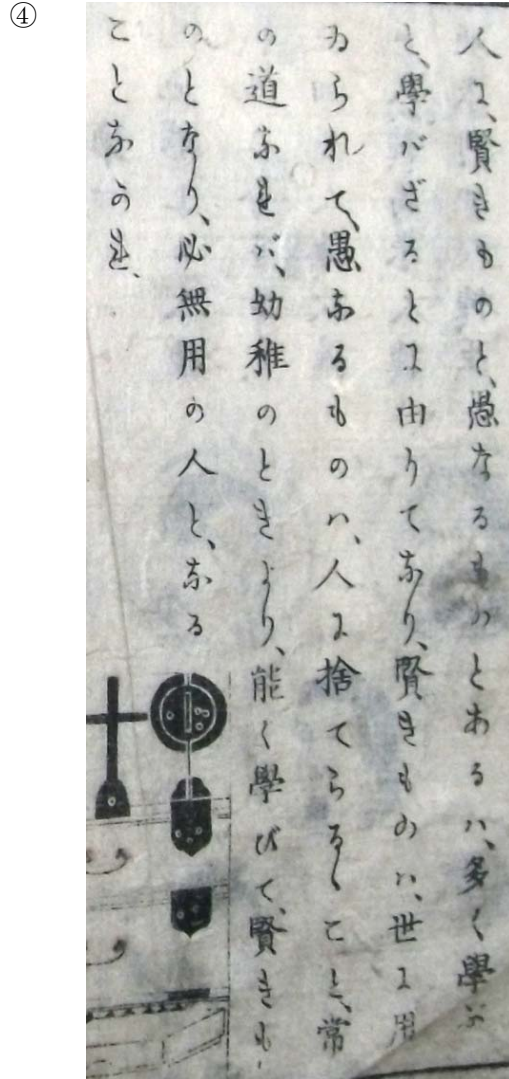 ④
人に、賢きものと、愚なるものとあるハ、多く學ぶ
と、學バざるとに由りてなり、賢きものハ、世に用
ゐられて、愚なるものハ、人に捨てらるゝこと、常
の道なれバ、幼稚のときより、能く學びて、賢きも
のとなり、必無用の人と、なる
ことなかれ、